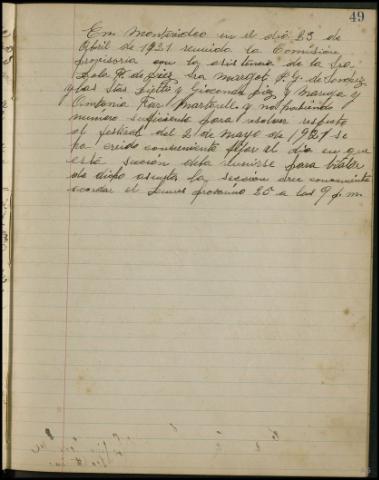 49
En Montevideo en el dia 23 de
Abril de 1921 reunida la Comisión
provisoria con la asistencia de la Sra
Lola R. de Diez Sra Margot P. G. de
y las Stas y Gioconda Diez y Maruja y
Antonia Martorell y no habiendo
numero suficiente para resolver respeto
al festival del 2 de Mayo de 1921 se
ha creido conveniente fijar el dia en que
esta sección debe reunirse para tratar
de dicho asunto la sección cree conveniente
acordar el Lunes proximo 25 a las 9 p.m.